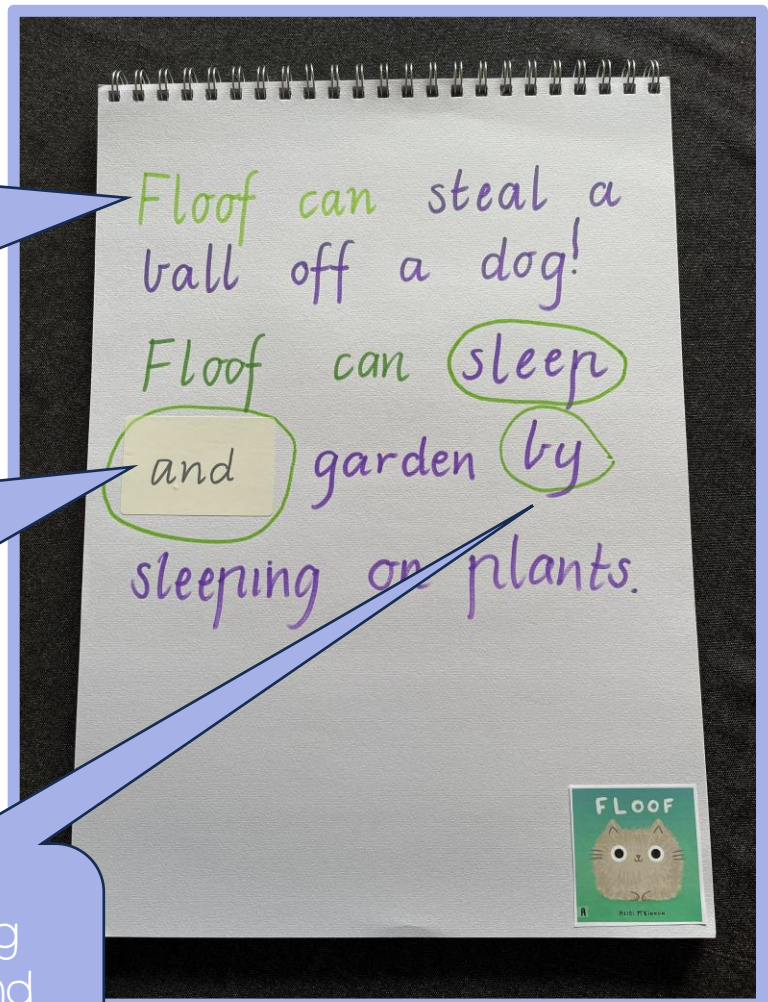 Floof can steal a
ball off a dog!
Floof can sleep
and garden by
sleeping on plants.
FLOOF
HEIDI McKINNON
g
nd